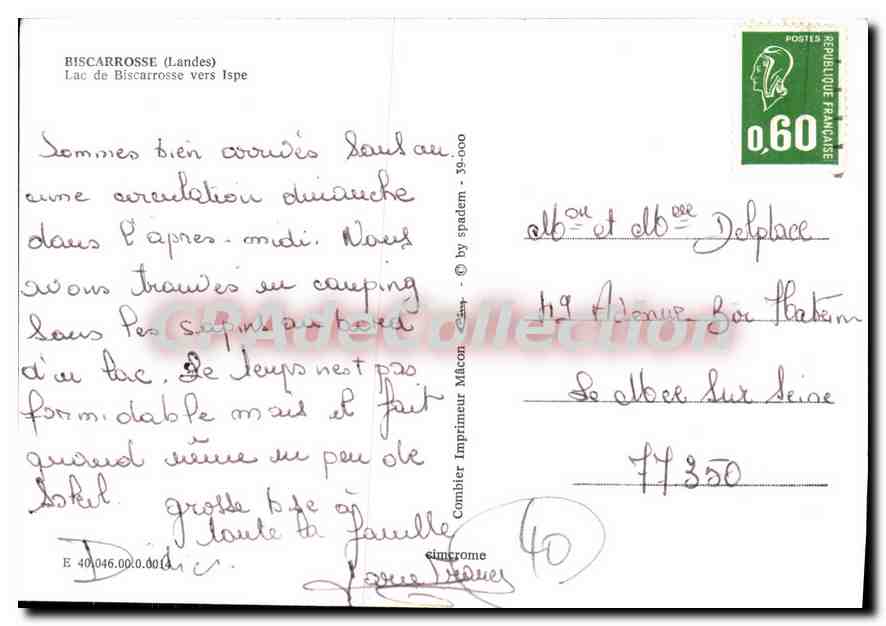 BISCARROSSE (Landes)
Lac de Biscarrosse vers Ispe
POSTES
RÉPUBLIQUE FRANÇAISE
0,60
Sommes bien arrivés sans au
cune circulation dimanche
dans l'après-midi. Nous
avons trouvés un camping
sous les sapins au bord
d'un lac. Le temps n'est pas
formidable mais il fait
quand même un peu de
soleil. grosse bise à
toute la famille
Didier
Marie France
Mon et Mme Delplace
49 Avenue
Le Mee Sur Seine
77350
CPAdeCollection
Combier Imprimeur Mâcon - © by spadem - 39-000
cimcrome
E 40.046.00.0.0014
40